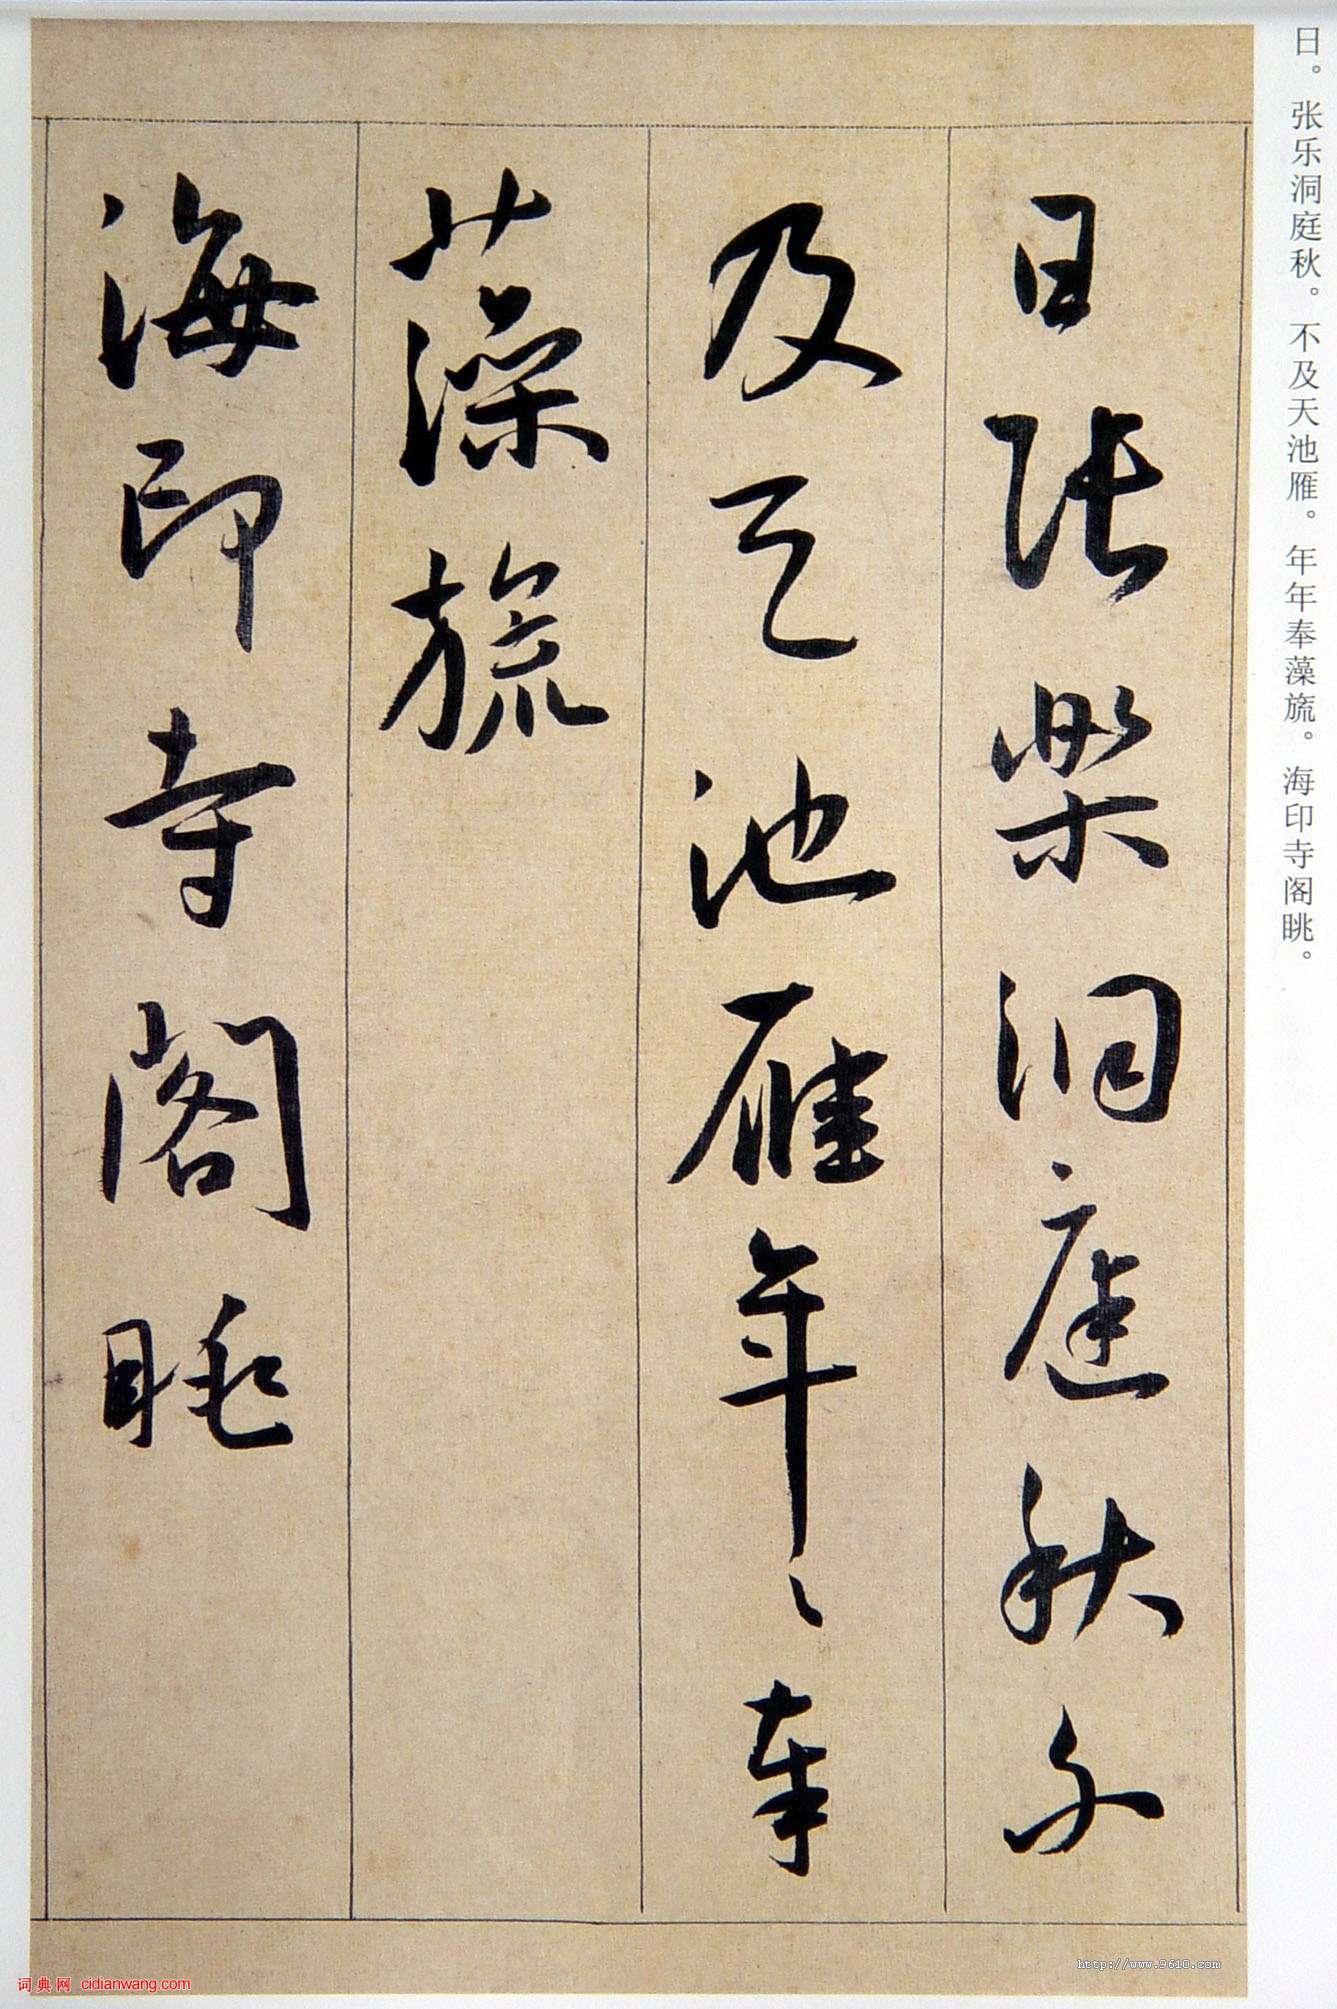 日。张乐洞庭秋。不及天池雁。年年奉藻旒。海印寺阁眺。
日張樂洞庭秋不
及天池雁年〻奉
藻旒
海印寺閣眺
词典网 cidianwang.com
http://www.9610.com